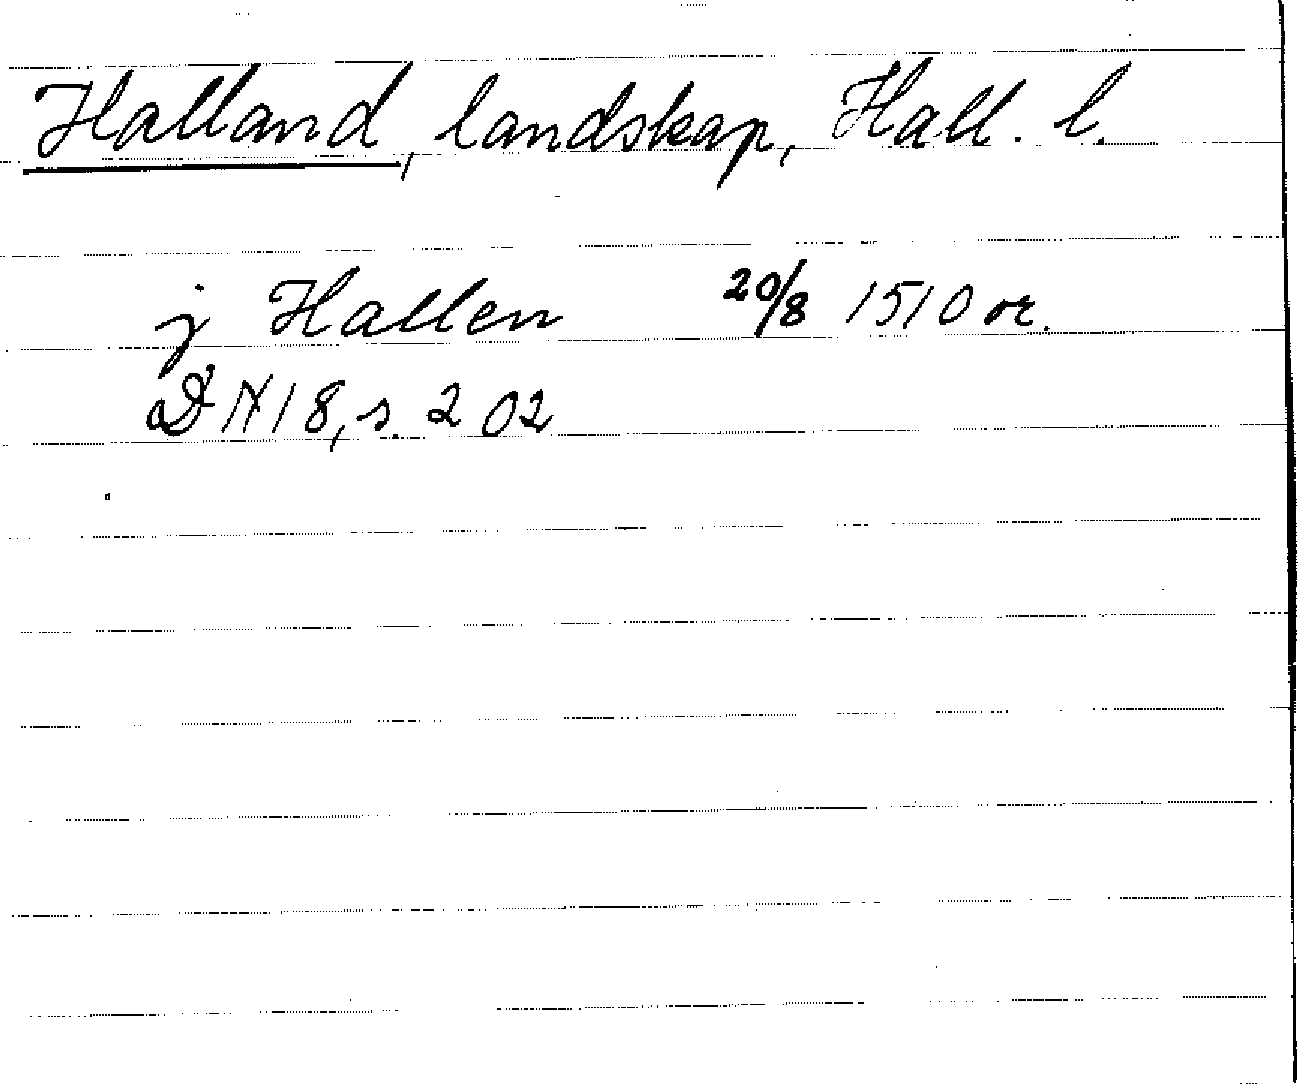 Halland, landskap, Hall. l.
j Hallen 20/8 1510 or.
DN 18, s. 202